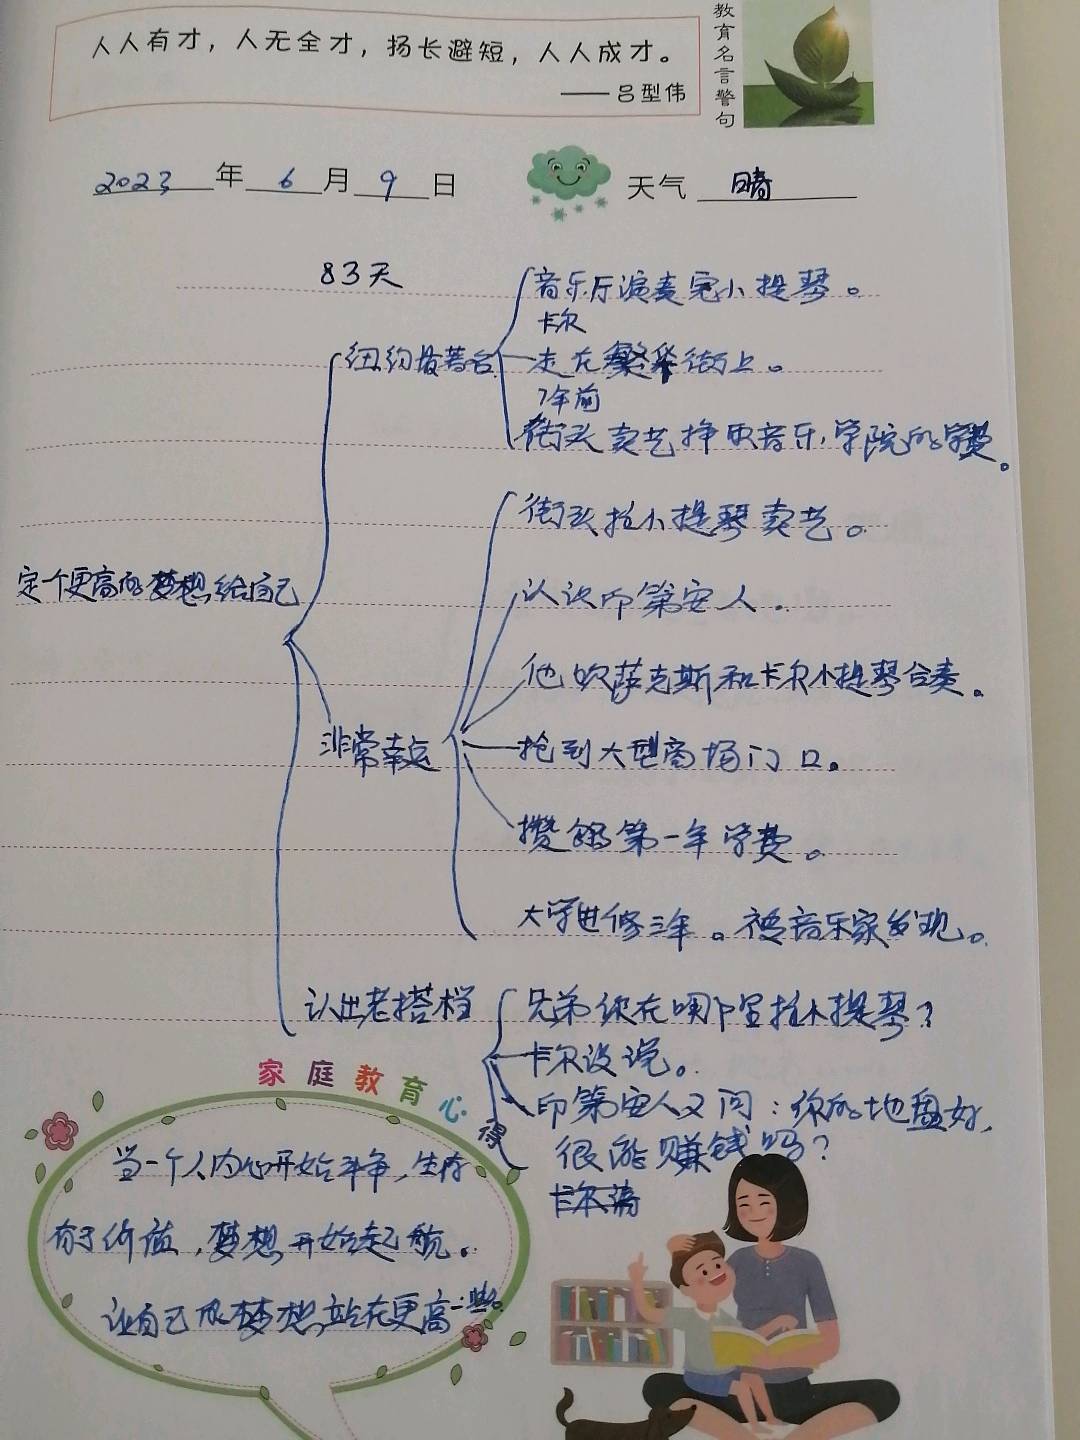 人人有才，人无全才，扬长避短，人人成才。
——吕型伟
教育名言警句
2023年6月9日 天气 晴
83天
音乐厅演奏完小提琴。
卡尔
纽约最著名
走在繁华街上。
7年前
街头卖艺挣取音乐学院的学费。
街头拉小提琴卖艺。
定个更高的梦想给自己
认识印第安人.
他吹萨克斯和卡尔小提琴合奏。
非常幸运
抢到大型商场门口。
攒够第一年学费。
大学进修三年。被音乐家发现。
认出老搭档
兄弟你在哪里拉小提琴？
卡尔没说。
印第安人又问：你的地盘好，
很能赚钱吗？
卡尔
家庭教育心得
当一个人内心开始斗争，生存
有了价值，梦想开始起航。
让自己的梦想站在更高一些。